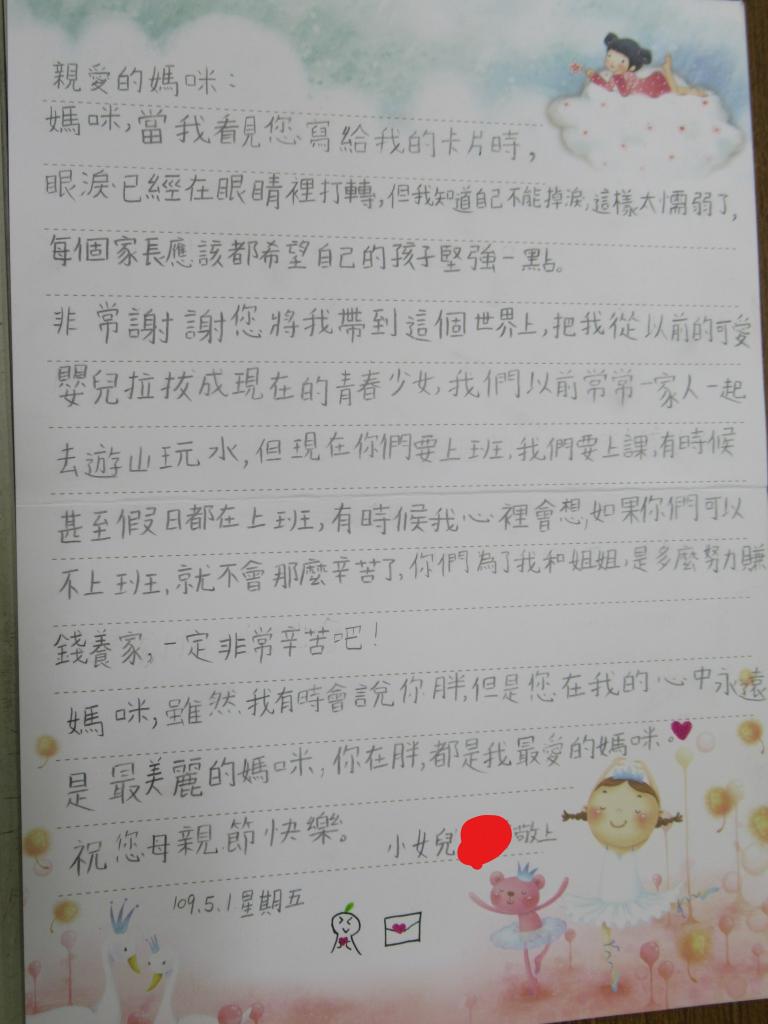 親愛的媽咪：
媽咪,當我看見您寫給我的卡片時,
眼淚已經在眼睛裡打轉,但我知道自己不能掉淚,這樣太懦弱了,
每個家長應該都希望自己的孩子堅強一點。
非常謝謝您將我帶到這個世界上,把我從以前的可愛
嬰兒拉拔成現在的青春少女,我們以前常常一家人一起
去遊山玩水,但現在你們要上班,我們要上課,有時候
甚至假日都在上班,有時候我心裡會想,如果你們可以
不上班,就不會那麼辛苦了,你們為了我和姐姐,是多麼努力賺
錢養家,一定非常辛苦吧！
媽咪,雖然我有時會說你胖,但是您在我的心中永遠
是最美麗的媽咪,你在胖,都是我最愛的媽咪。
祝您母親節快樂。 小女兒 敬上
109.5.1星期五